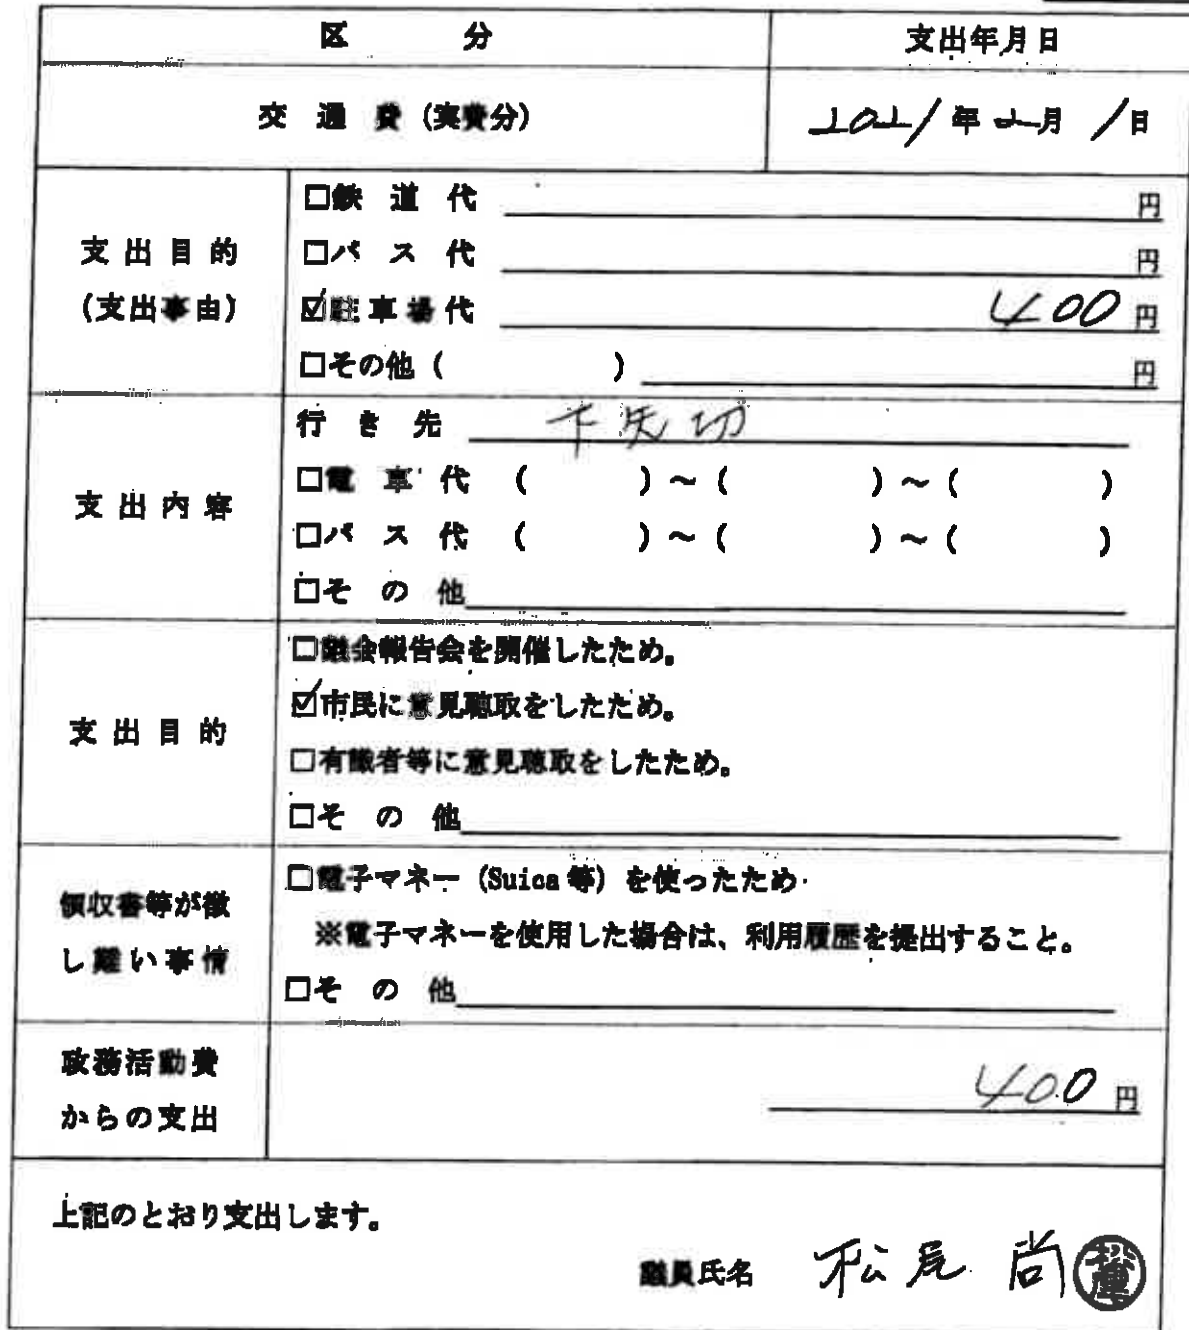 区 分 支出年月日
交 通 費 (実費分) 2021年2月1日
支出目的
(支出事由)
□鉄 道 代 円
□バ ス 代 円
☑駐 車 場 代 400円
□その他 ( ) 円
支出内容
行 き 先 下矢切
□電 車 代 ( )~( )~( )
□バ ス 代 ( )~( )~( )
□そ の 他
支出目的
□議会報告会を開催したため。
☑市民に意見聴取をしたため。
□有識者等に意見聴取をしたため。
□そ の 他
領収書等が徴
し難い事情
□電子マネー (Suica等) を使ったため
※電子マネーを使用した場合は、利用履歴を提出すること。
□そ の 他
政務活動費
からの支出
400円
上記のとおり支出します。
議員氏名 松尾 尚